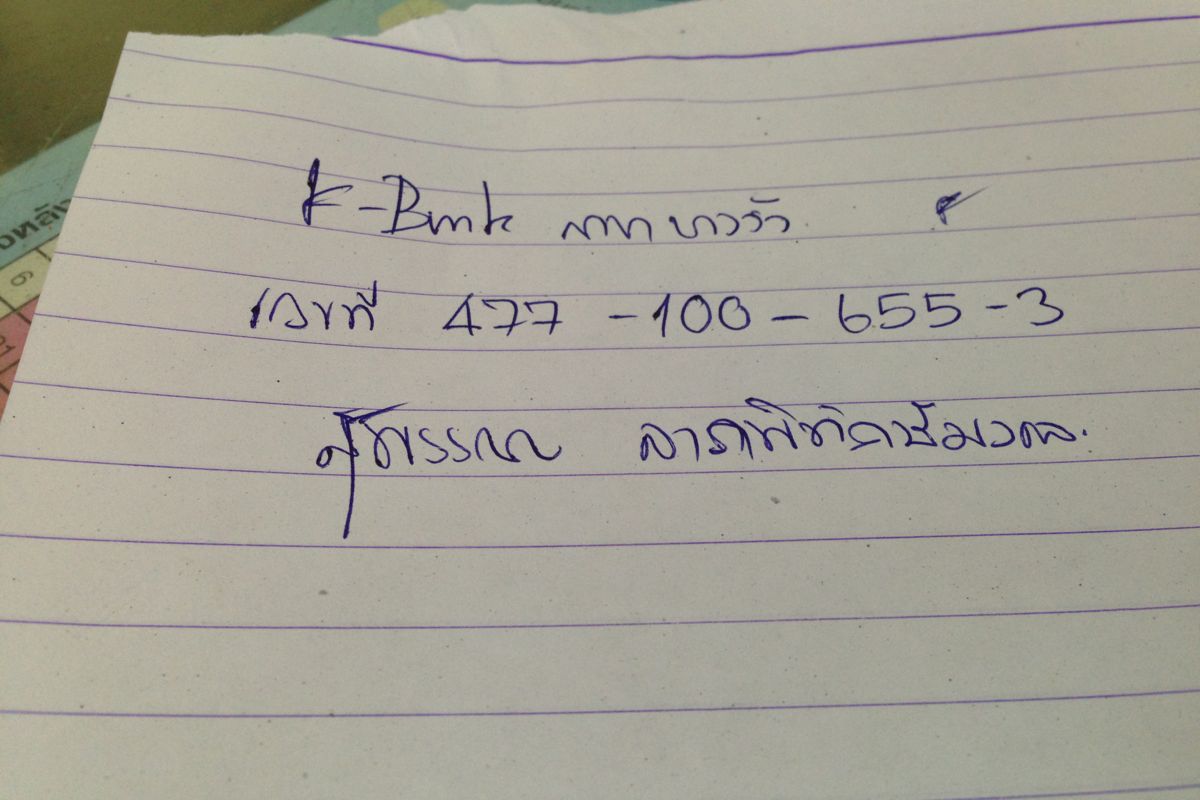 K-Bank สาขา บางรัก
เลขที่ 477-100-655-3
สุพรรณ ลาภพิทักษ์มงคล